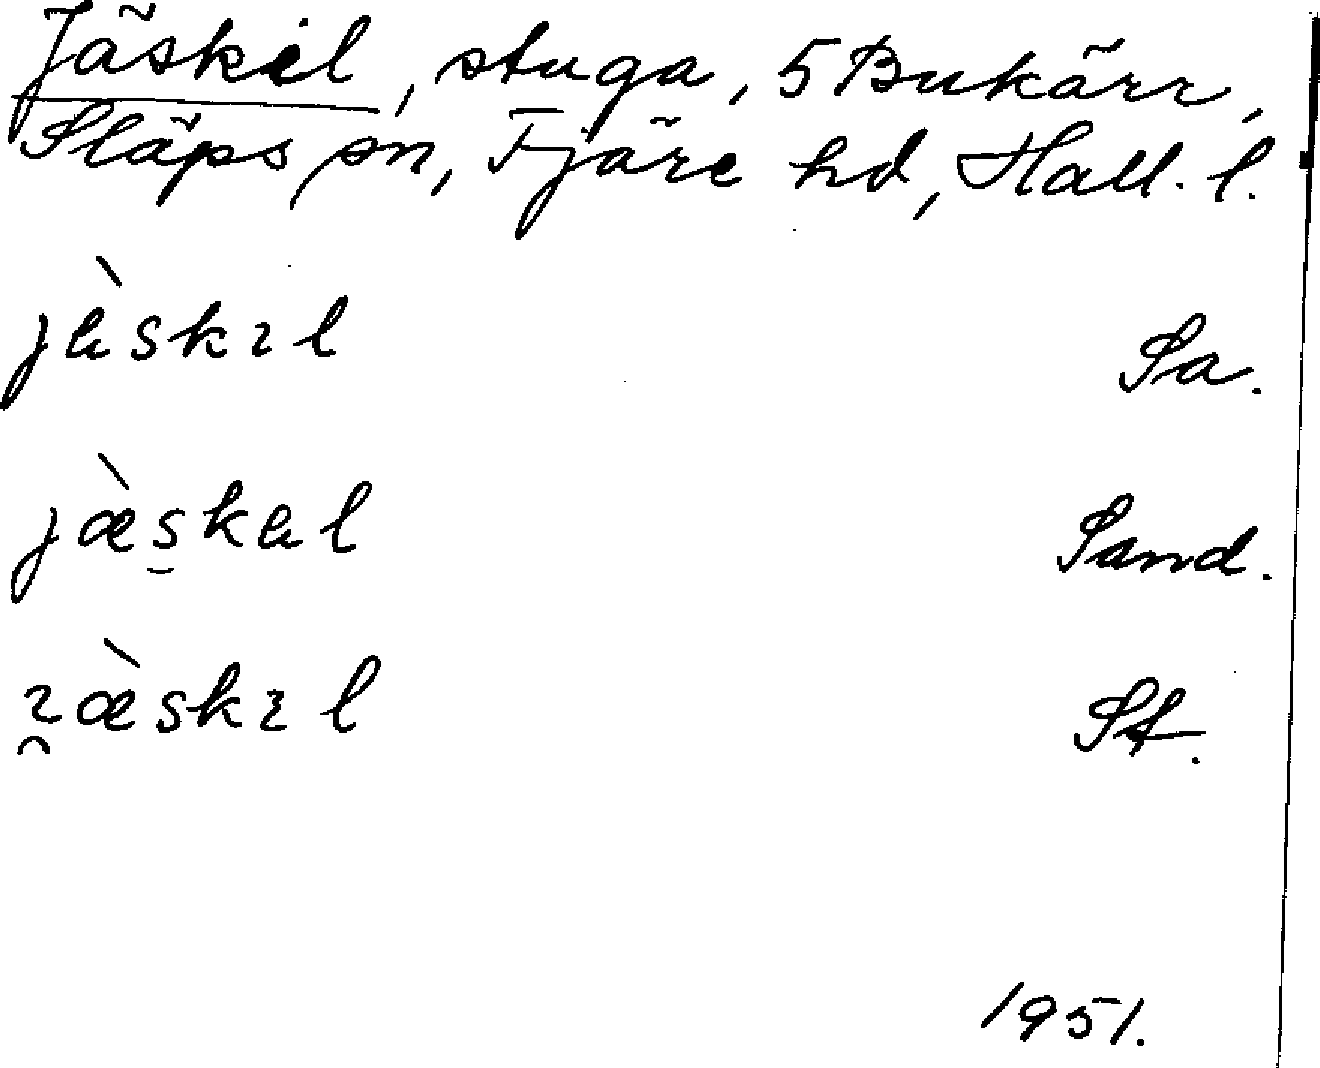 Jäskil, stuga, 5 Bukärr,
Släps sn, Fjäre hd, Hall. l.
jὰskɩl Sa.
jæ̀skal Sand.
ɩ̯æ̀skɩl St.
1951.